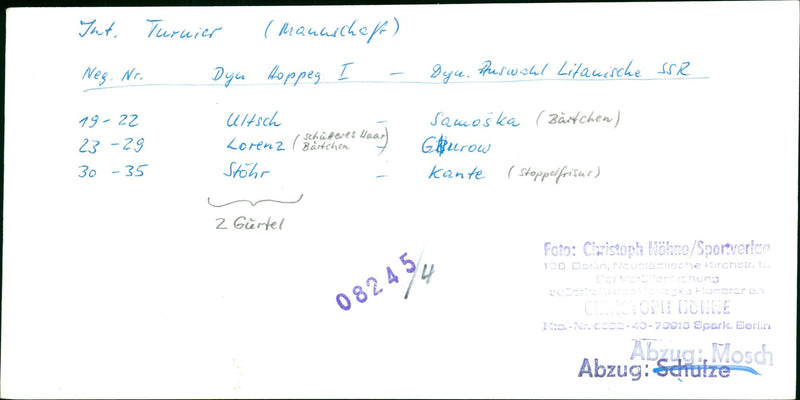 Int. Turnier (Mannschaft)
Neg. Nr. Dyn Hoppeg. I – Dyn. Auswahl Litauische SSR
19-22 Ultsch – Samoška (Bärtchen)
23-29 Lorenz (schütteres Haar Bärtchen) – Gurow
30-35 Stöhr – Kante (Stoppelfrisur)
2 Gürtel
08245/4
Foto: Christoph Höhne/Sportverlag
Berlin, Neustädtische Kirchstr.
Bei Veröffentlichung
Honorar an
CHRISTOPH HÖHNE
Spark. Berlin
Abzug: Mosch
Abzug: Schulze